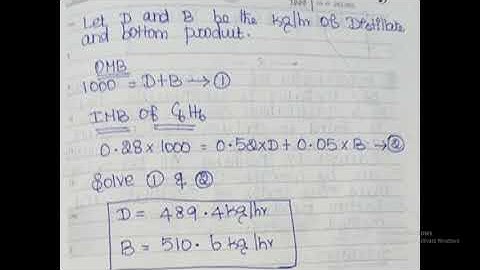 Let D and B be the kg/hr of Distillate
and bottom product.
OMB
1000 = D+B → ①
IMB of C6H6
0.28 x 1000 = 0.52xD + 0.05 x B → ②
Solve ① & ②
D = 489.4 kg/hr
B = 510.6 kg/hr